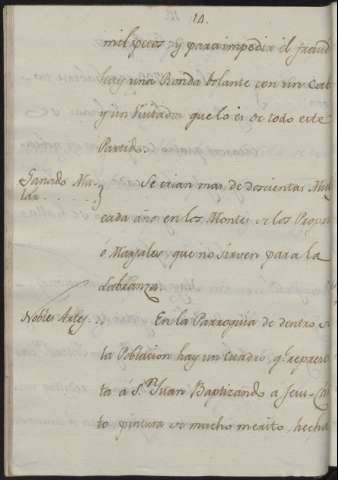 14.
mil pesos y para impedir el fraud
hay una Ronda bolante con un Cab
y un Visitador que lo es de todo este
Partido.
Ganado Mu- Se crian mas de descientas Mul
lar
cada año en los Montes de los Propios
ó Marjales que no sirven para la
labranza.
Nobles Artes. En la Parroquia de dentro de
la Poblacion hay un cuadro, q.e represen
ta á S.n Juan Baptizando a Jesu-Cris
to pintura de mucho merito, hecha